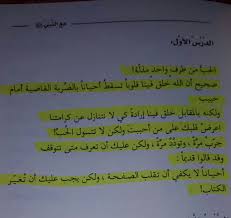 مع النبي ﷺ
الدرس الأول:
الحب من طرف واحد مذلة!
صحيح أن الله خلق فينا قلوباً تسقط أحياناً بالضربة القاضية أمام
حبيب
ولكنه بالمقابل خلق فينا إرادة كي لا نتنازل عن كرامتنا
اعرض قلبك على من أحببت ولكن لا تتسول الحب!
جرب مرة، وتودد مرة، ولكن عليك أن تعرف متى تتوقف
وقد قالوا قديماً:
أحياناً لا يكفي أن تقلب الصفحة، ولكن يجب عليك أن تغير
الكتاب!